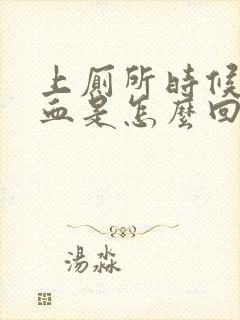 上厕所時候
血是怎麼回
湯淼